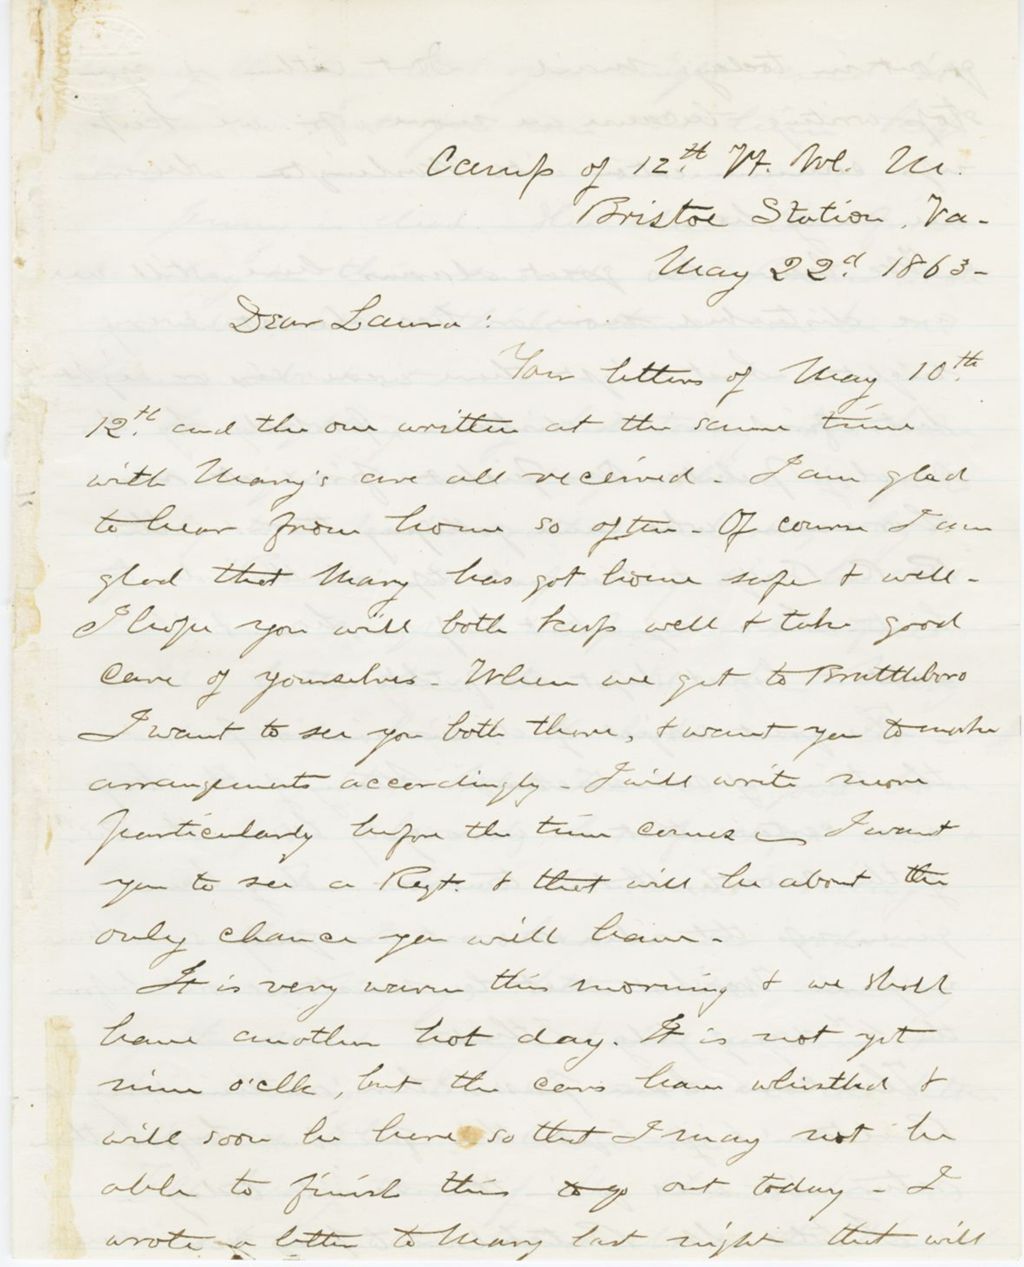 Camp of 12th Vt. Vol. M.
Bristoe Station, Va-
May 22d 1863-
Dear Laura:
Your letters of May 10th
12th and the one written at the same time
with Mary's are all received. I am glad
to hear from home so often. Of course I am
glad that Mary has got home safe & well-
I hope you will both keep well & take good
care of yourselves. When we get to Brattleboro
I want to see you both there, & want you to make
arrangements accordingly. I will write more
particularly before the time comes - I want
you to see a Regt. & that will be about the
only chance you will have.
It is very warm this morning & we shall
have another hot day. It is not yet
nine o'clk, but the cars have whistled &
will soon be here so that I may not be
able to finish this to go out today - I
wrote a letter to Mary last night that will